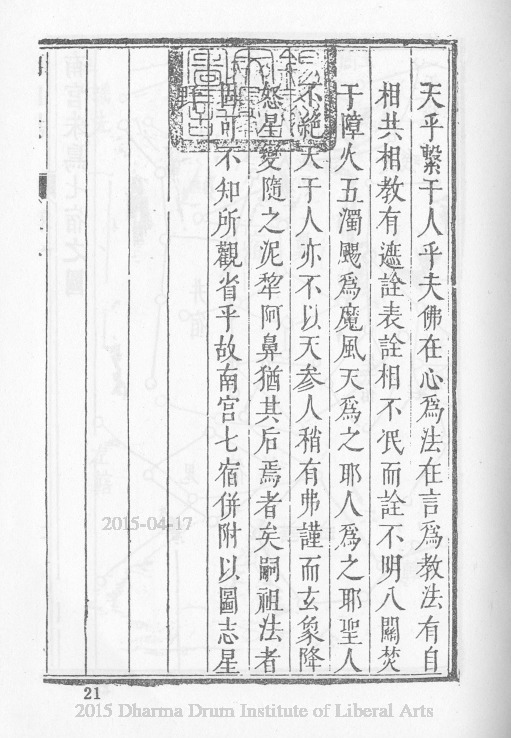 天乎繫于人乎夫佛在心爲法在言爲教法有自
相共相教有遮詮表詮相不泯而詮不明八關焚
于障火五濁颺爲魔風天爲之耶人爲之耶聖人
不絶天于人亦不以天参人稍有弗謹而玄象降
怒星變隨之泥犂阿鼻猶其后焉者矣嗣祖法者
固可不知所觀省乎故南宫七宿併附以圖志星
野云
21
2015-04-17
2015 Dharma Drum Institute of Liberal Arts